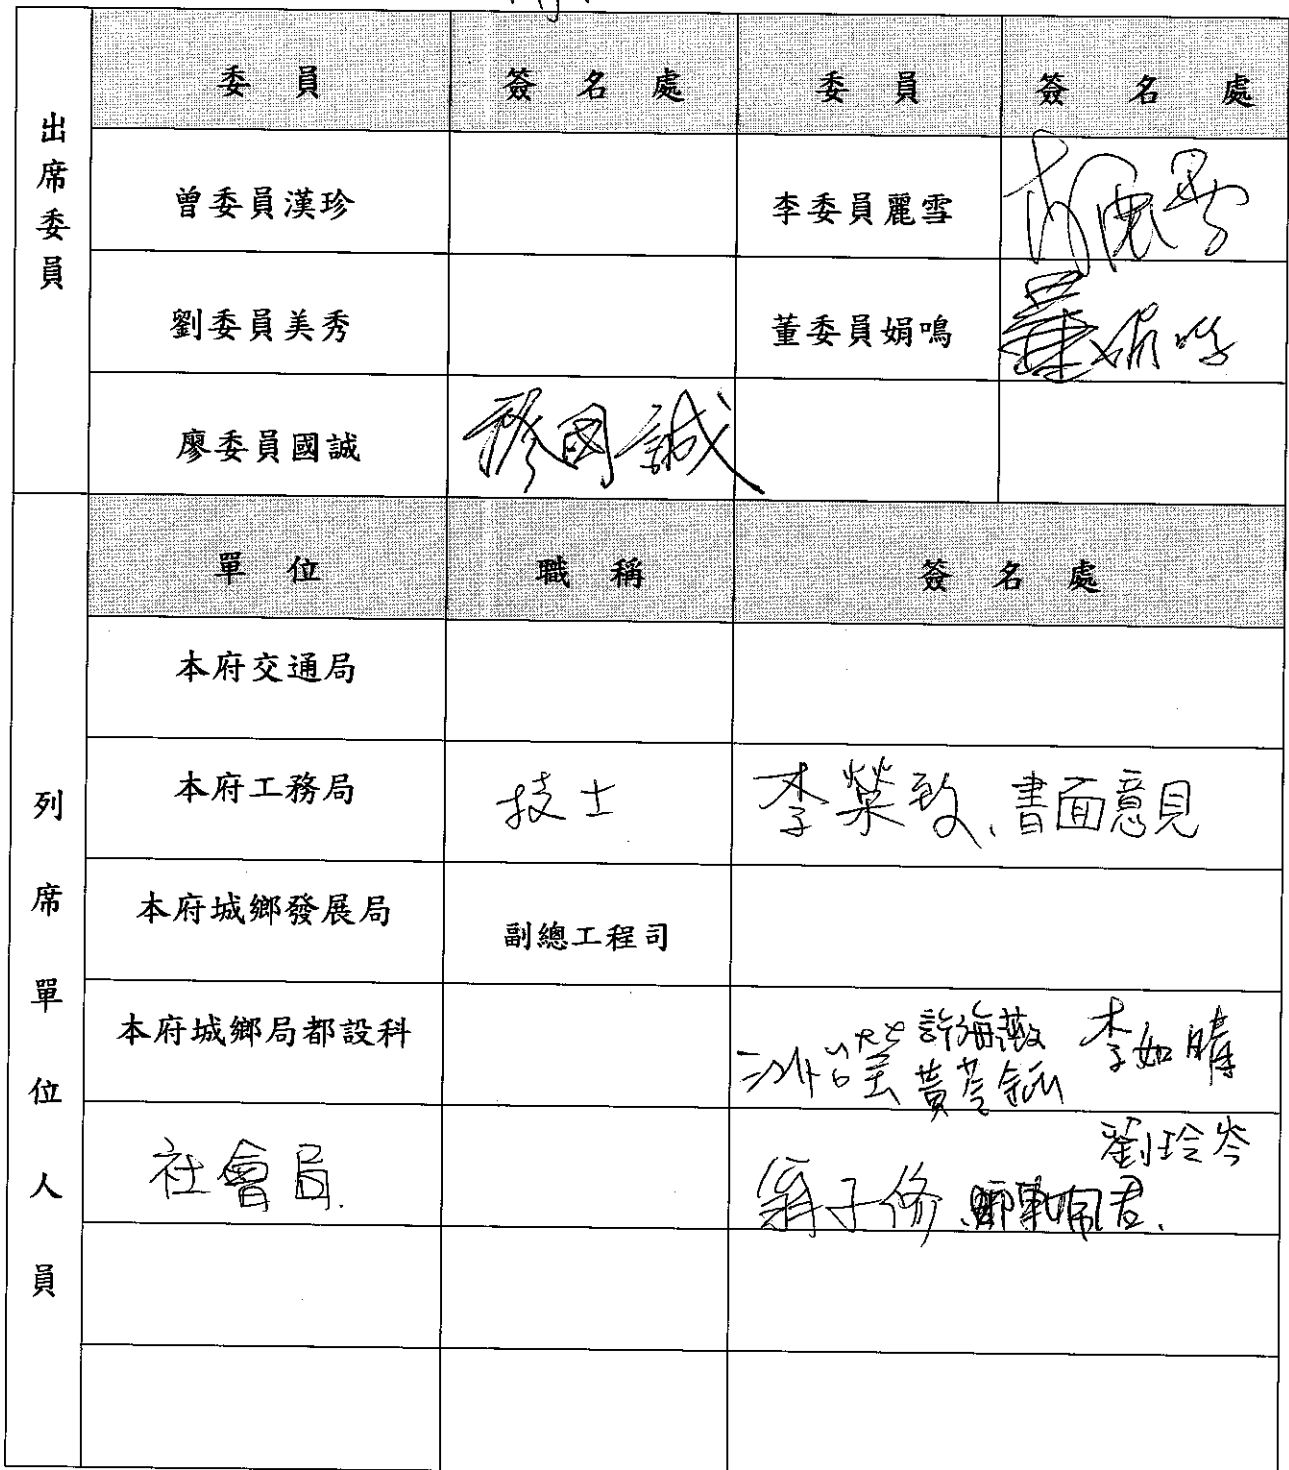 出席委員
委員 簽名處 委員 簽名處
曾委員漢珍 李委員麗雪 李麗雪
劉委員美秀 董委員娟鳴 董娟鳴
廖委員國誠 廖國誠
列席單位人員
單位 職稱 簽名處
本府交通局
本府工務局 技士 李榮致、書面意見
本府城鄉發展局 副總工程司
本府城鄉局都設科 李如晴
社會局 劉玲岑